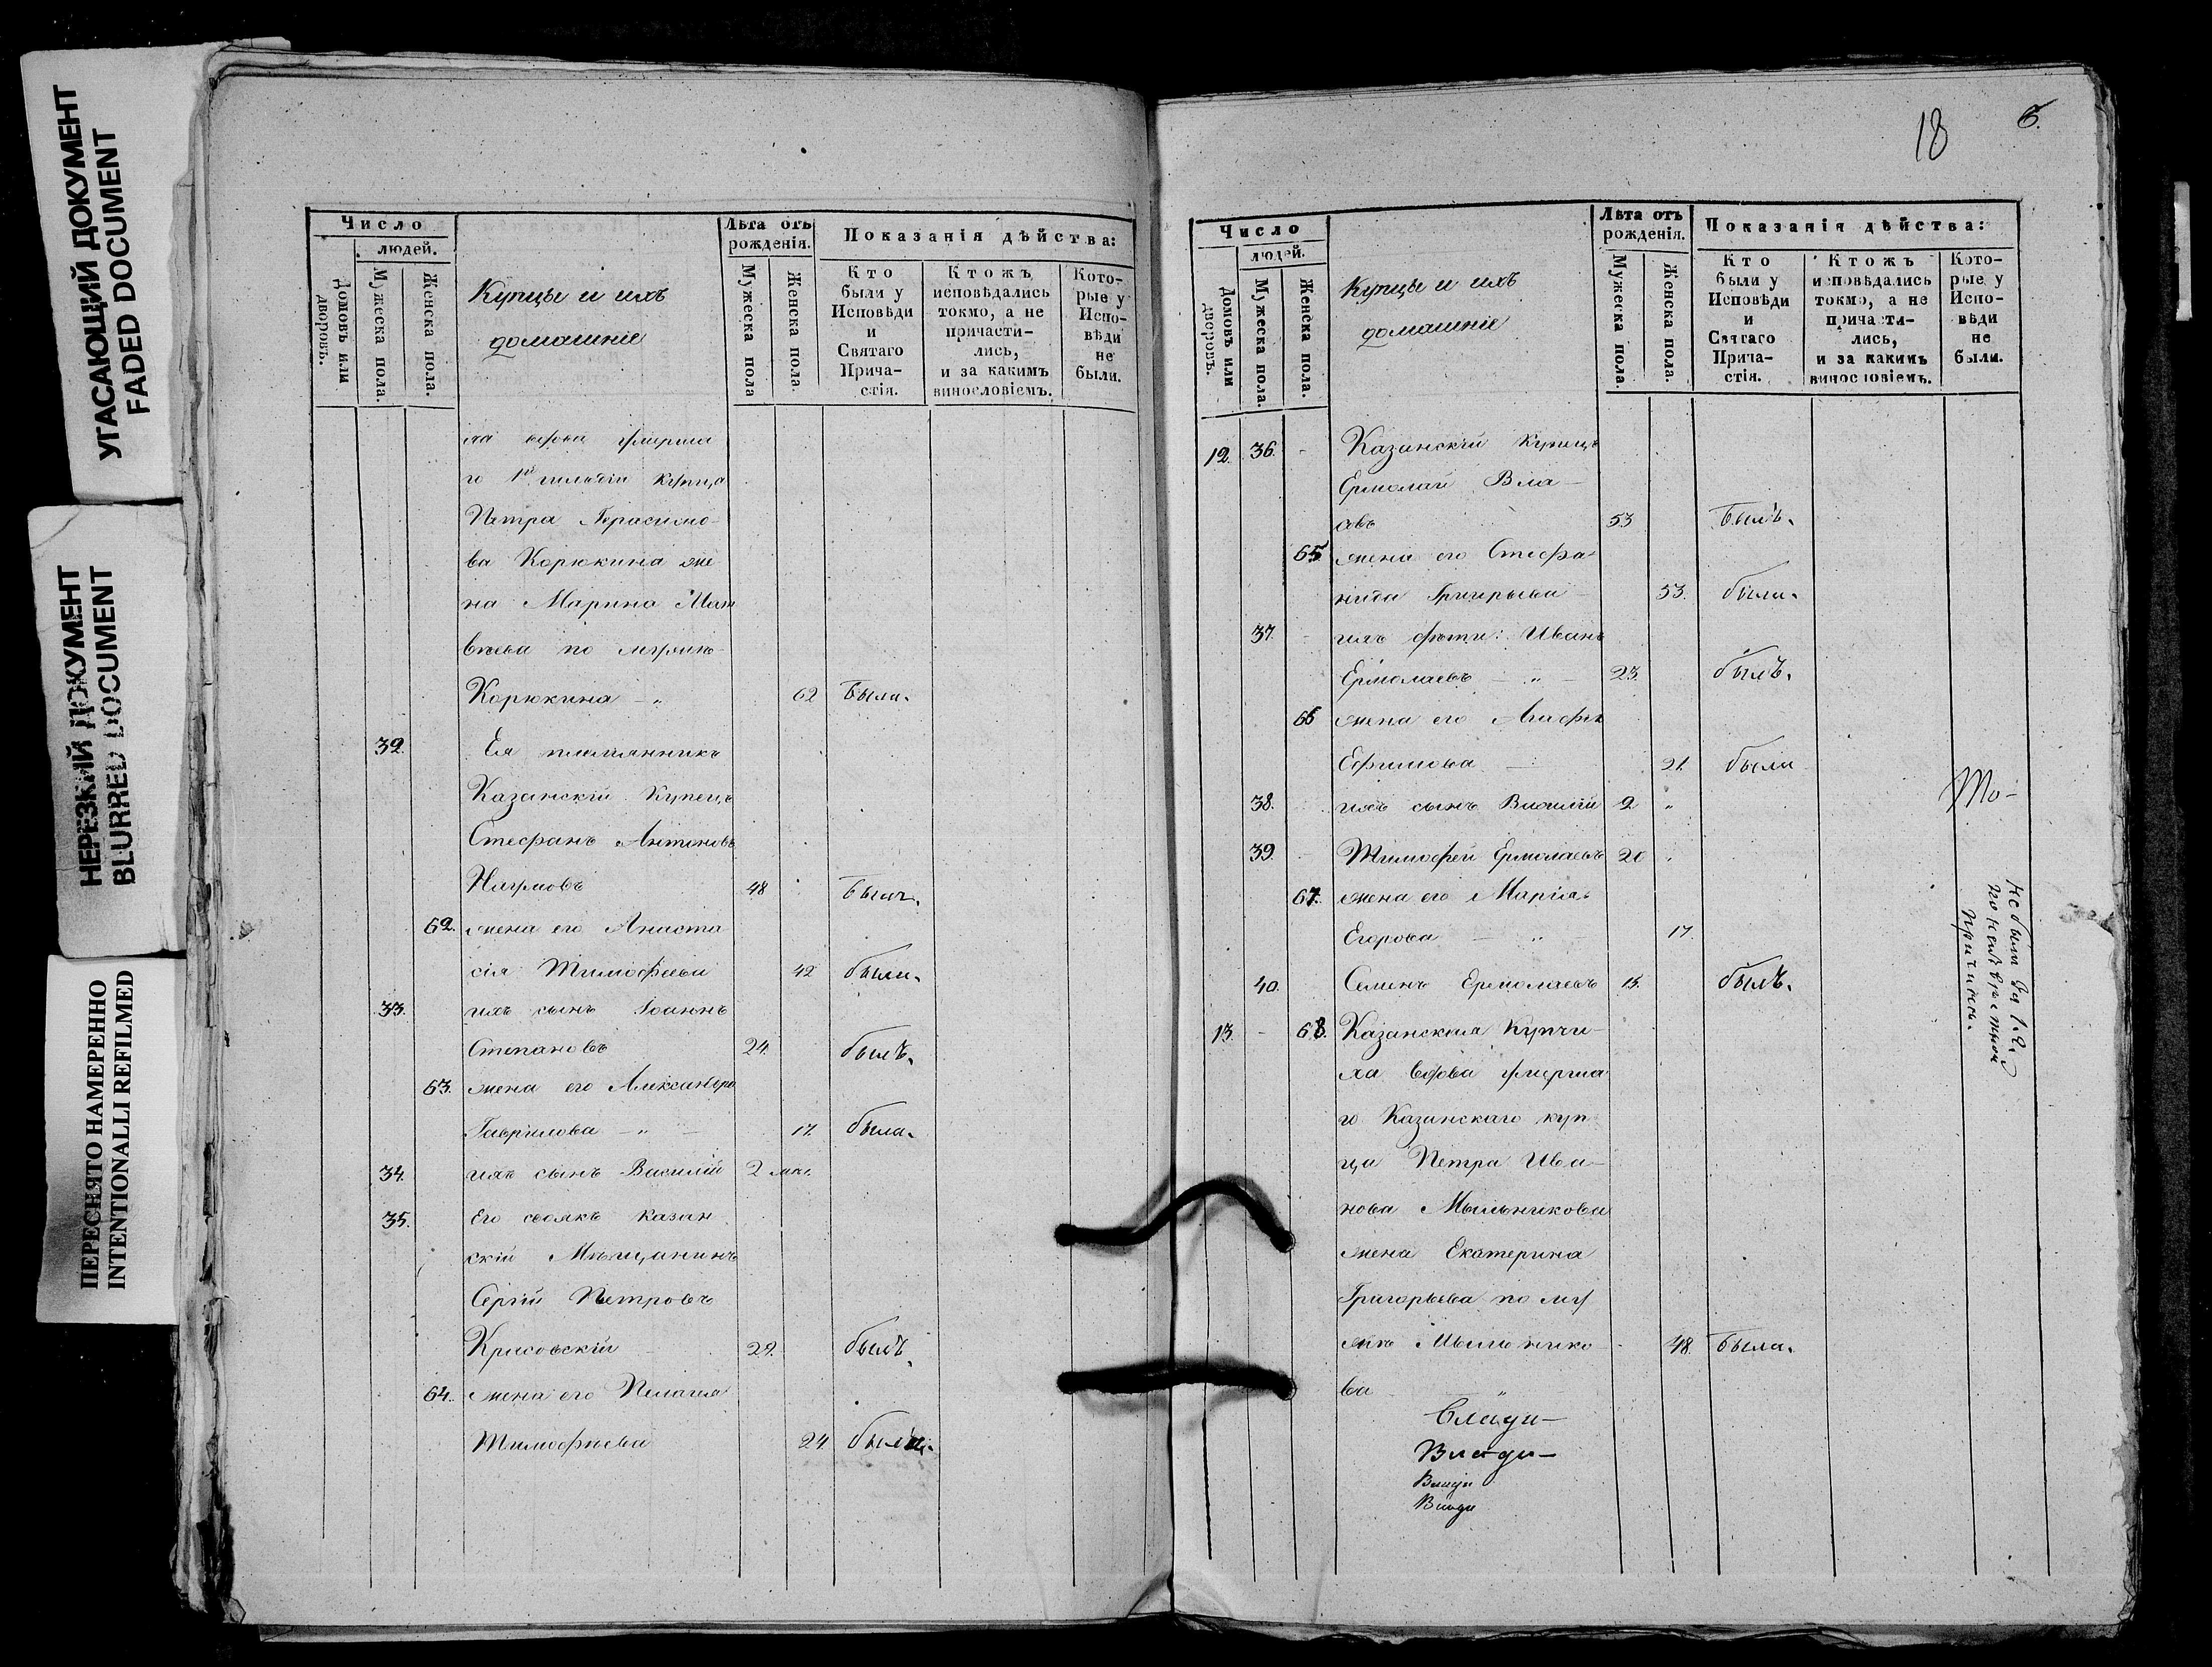 УГАСАЮЩИЙ ДОКУМЕНТ
FADED DOCUMENT
НЕРЕЗКИЙ ДОКУМЕНТ
BLURRED DOCUMENT
ПЕРЕСНЯТО НАМЕРЕННО
INTENTIONALLI REFILMED
Число
людей.
Домовъ или дворовъ.
Мужеска пола.
Женска пола.
Купцы и ихъ
домашніе
Лѣта отъ
рожденія.
Мужеска пола
Женска пола.
Показанія дѣйства:
Кто
были у
Исповѣди
и
Святаго
Прича-
стія.
Ктожъ
исповѣдались
токмо, а не
причасти-
лись,
и за какимъ
винословіемъ.
Кото-
рые у
Испо-
вѣди
не
были.
ха вдова умерша
го 1й гильдіи купца
Петра Герасимо-
ва Корюкина же
на Марина Мат
вѣева по мужѣ
Корюкина 62 Была.
32. Ея племянникъ
Казанскій Купецъ
Стефанъ Антоновъ
Наумовъ 48 Былъ.
62. жена его Анаста
сія Тимофеева 42 была.
33. ихъ сынъ Іоаннъ
Степановъ 24. былъ.
63. жена его Александра
Гаврилова — „ — 17. была.
34. ихъ сынъ Василій 2 мѣс.
35. Его своякъ Казан
скій Мѣщанинъ
Сергій Петровъ
29. былъ.
64. жена его Пелагея
Тимофѣева 24 была.
18 6.
Число
людей.
Домовъ или дворовъ.
Мужеска пола.
Женска пола.
Купцы и ихъ
домашніе
Лѣта отъ
рожденія.
Мужеска пола.
Женска пола.
Показанія дѣйства:
Кто
были у
Исповѣди
и
Святаго
Прича-
стія.
Ктожъ
исповѣдались
токмо, а не
причасти-
лись,
и за какимъ
винословіемъ.
Кото-
рые у
Испо-
вѣди
не
были.
12. 36. - Казанскій Купецъ
Ермолай Вла-
овъ 53 Былъ.
65 жена его Стефа-
нида Григорьева 53. была.
37. - ихъ дѣти: Иванъ
Ермолаевъ — „ — 23. былъ.
66 жена его Агафья
Ефимова — 21. была
38. ихъ сынъ Василій 2 „
39. - Тимофей Ермолаевъ 20
67. жена его Марія
Егорова — „ 17.
40. Семенъ Ермолаевъ 15. былъ.
13. - 68. Казанская Купчи-
ха вдова умерша
го Казанскаго куп
ца Петра Ива-
нова Мыльникова
жена Екатерина
Григорьева по му
жѣ Мыльнико 48. Была.
ва „
Влади-
Влади-
Влади
Влади
То-
Не были
причинѣ.